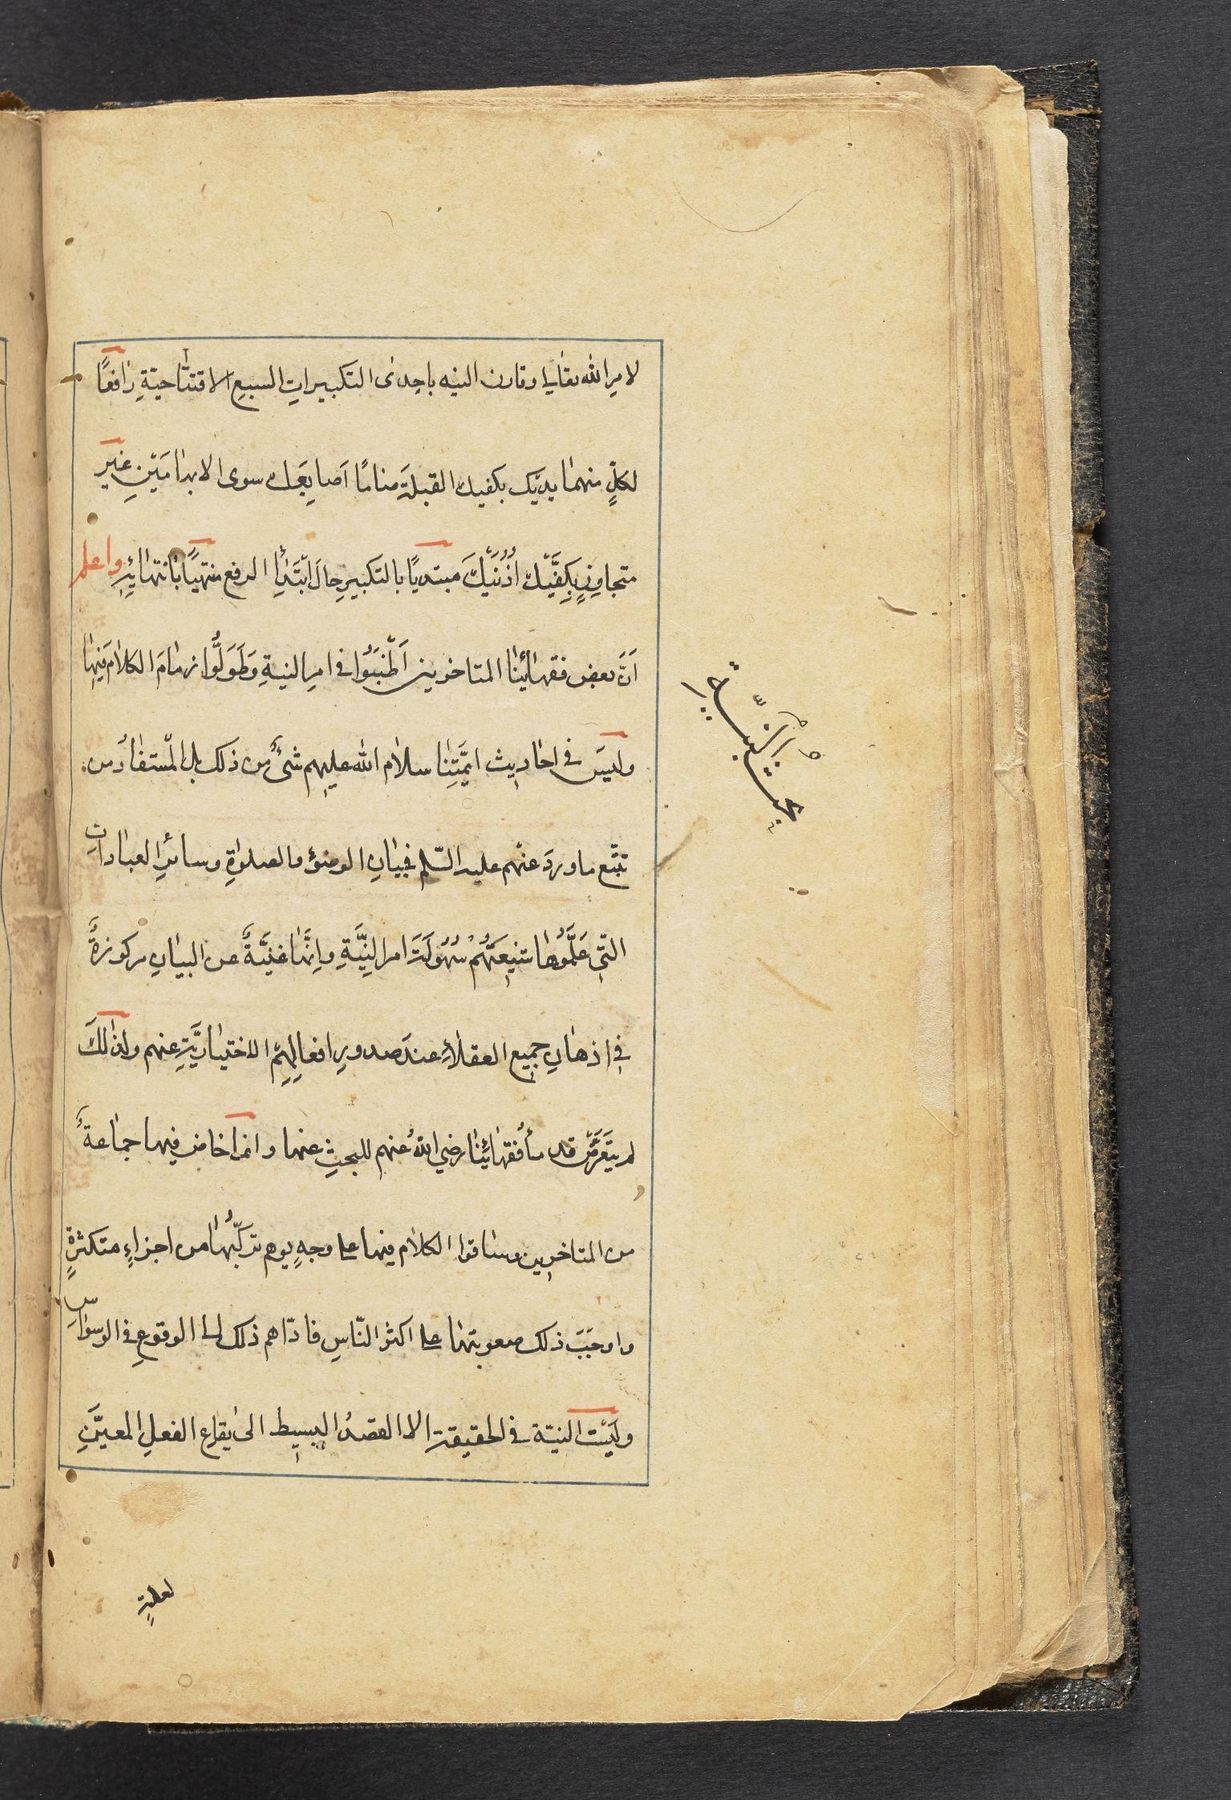 لامر الله تعالى وقارن النيه باحدى التكبيرات السبع الافتتاحيّةِ رافعًا
لكلٍّ منهما يديك بكفيك القبلةَ ضامًا اَصابعَك سوى الابهامَيْنِ غير
متجاوزٍ بِكَفَّيْكَ اُذُنَيْكَ مبتديًا بالتكبيرِ حالَ ابْتَدَإِ الرفع منتهيًا بانتهائِهِ واعلم
اَنَّ بعض فقهائِنا المتاخرين اَطْنَبُوا في امر النيةِ وَطَوَلُّوا زمامَ الكلام فيها
وليسَ في احاديث ائِمَّتِنا سلام الله عليهم شئٌ من ذلك بل المستفادُ من
تتبّع ما وردَ عنهم عليه السّلم في بيان الوضوُء والصلوةِ وسائرِ العباداتِ
التّي عَلَّمُوها شيعَتَهُمْ سُهُولَتَ امر النِيَّةِ وانَّها غنيَّةٌ عن البيانِ مركوزةٌ
في اذهان جميع العقلاءِ عندَ صدورِ افعالِهِمْ الاختياريَّةِ عنهم ولذالكَ
لم يتَعَرَّضْ قدماُ فقهائِنا رضي اللهُ عنهم للبحثِ عنها وانما خاض فيها جماعةٌ
من المتاخرين وساقوا الكلام فيها على وجهٍ يوهم تركّبُها من اجزاءٍ متكثرةٍ
واوجَبَ ذلك صعوبتها على اكثر النّاس فادّاهم ذلك الى الوقوعِ في الوسواسِ
ولَيْسَت النيّة في الحقيقة الا القصدُ البسيط الى ايقاع الفعلِ المعيَّنِ
لعلةٍ
بحث النيّة